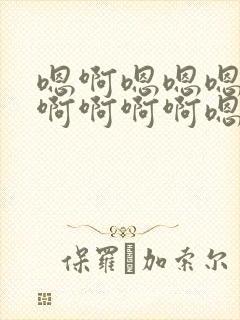 嗯啊嗯嗯嗯
啊啊啊啊嗯
保羅加索尔